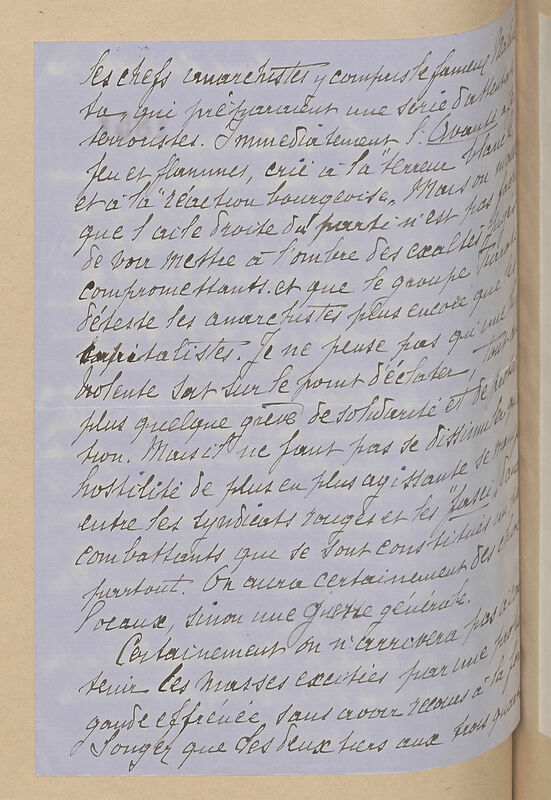 les chefs anarchistes y compris le fameux
ta, qui préparaient une série d'attentats
terroristes. Immédiatement l'Avanti
feu et flammes, crié à la "terreur
et à la "réaction bourgeoise". Mais on
que l'aile droite du parti n'est pas
de voir mettre à l'ombre des exaltés
compromettants et que le groupe
déteste les anarchistes plus encore que les
capitalistes. Je ne pense pas qu'une
violente soit sur le point d'éclater, tout
plus quelque grève de solidarité et de
tion. Mais il ne faut pas se dissimuler
hostilité de plus en plus agissante se
entre les syndicats rouges et les "fasci"
combattants que se sont constitués un
partout. On aura certainement des
locaux, sinon une guerre générale.
Certainement on n'arrivera pas à
tenir les masses excitées par une
gande effrénée, sans avoir recours à la
Songez que les deux tiers aux trois